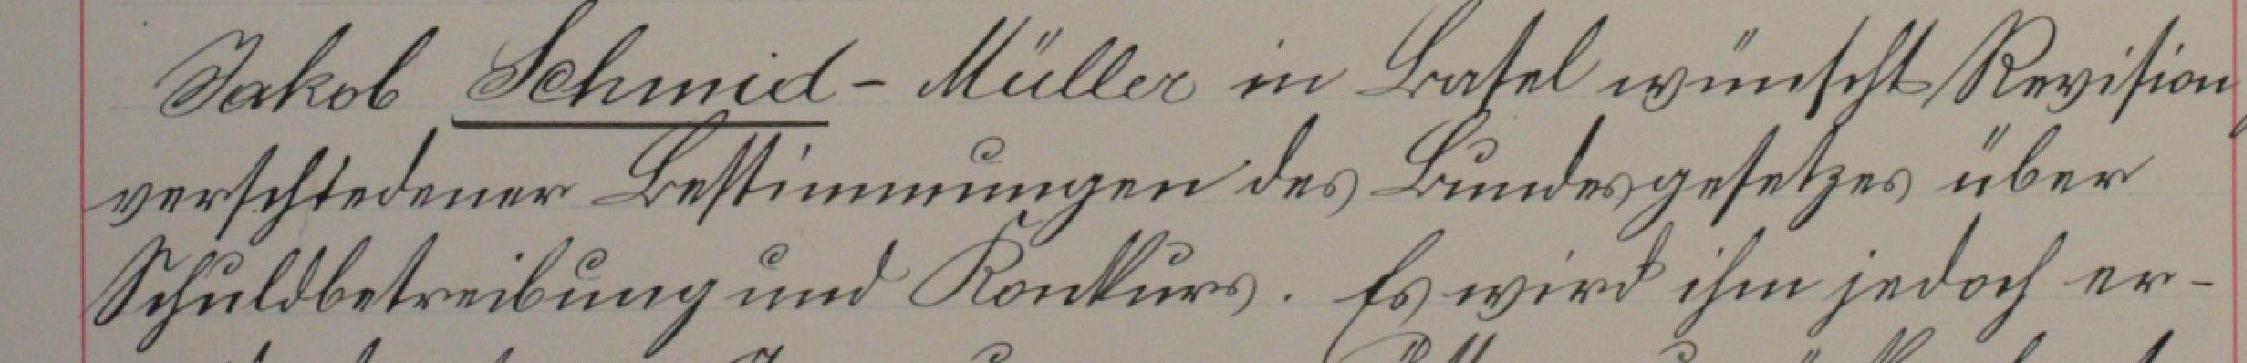 Jakob Schmid - Müller in Basel wünscht Revision
verschiedener Bestimmungen des Bundesgesetzes über
Schuldbetreibung und Konkurs. Es wird ihm jedoch er-